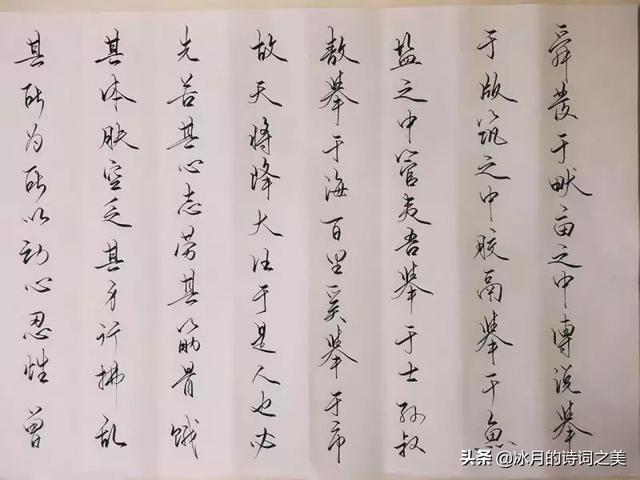 舜發于畎亩之中傅说举
于版筑之中胶鬲举于鱼
盐之中管夷吾举于士孙叔
敖举于海百里奚举于市
故天将降大任于是人也必
先苦其心志劳其筋骨饿
其体肤空乏其身行拂乱
其所为所以动心忍性曾
头条 @冰月的诗词之美